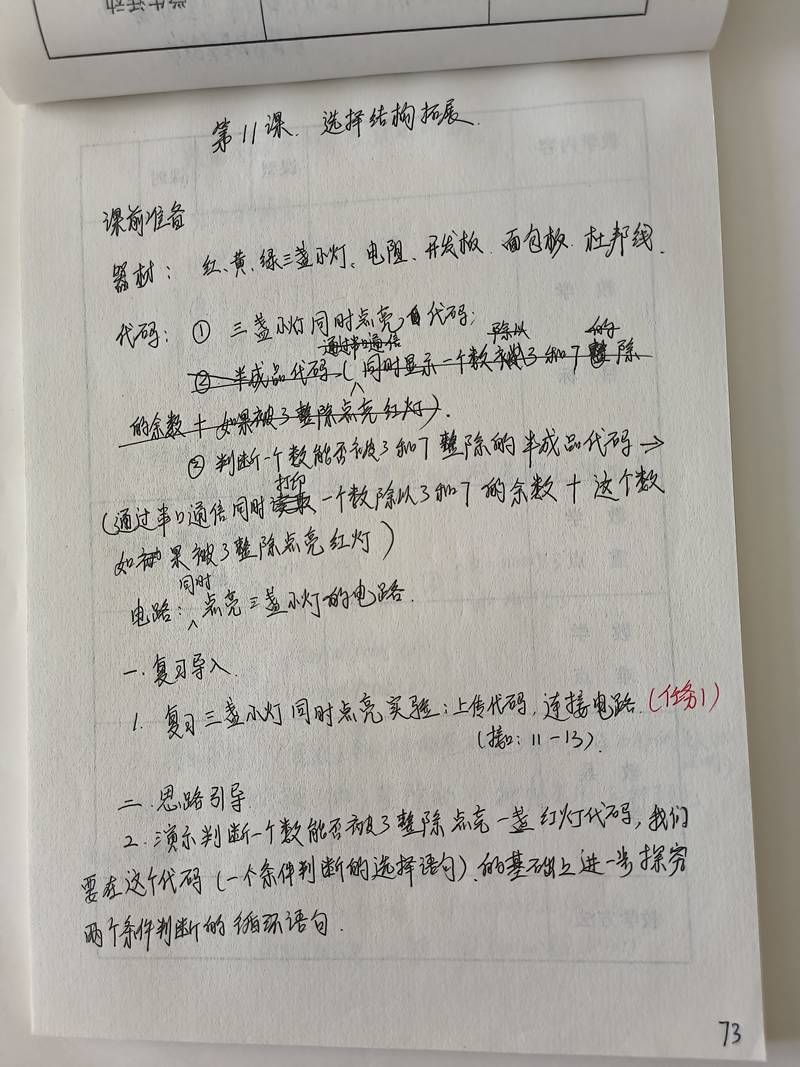 学生活动
第11课. 选择结构拓展.
课前准备
器材: 红、黄、绿三盏小灯、电阻、开发板. 面包板. 杜邦线.
代码: ① 三盏小灯同时点亮代码;
通过串口通信 除以 的
②. 半成品代码 (同时显示一个数 3和7 整除
的余数 + 如果被3整除点亮红灯).
② 判断一个数能否被3和7整除的半成品代码→
打印
(通过串口通信同时 一个数除以3和7的余数 + 这个数
如果被3整除点亮红灯)
同时
电路: ^点亮三盏小灯的电路.
一. 复习导入.
1. 复习三盏小灯同时点亮实验: 上传代码, 连接电路. (任务1)
(接口: 11-13).
二. 思路引导
2. 演示判断一个数能否被3整除点亮一盏红灯代码, 我们
要在这个代码 (一个条件判断的选择语句). 的基础上进一步探究
两个条件判断的循环语句.
73